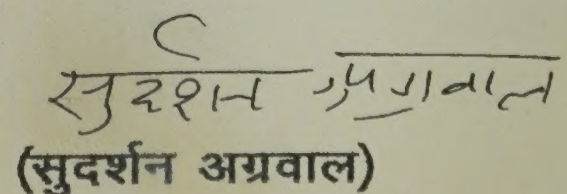 सुदर्शन अग्रवाल
(सुदर्शन अग्रवाल)